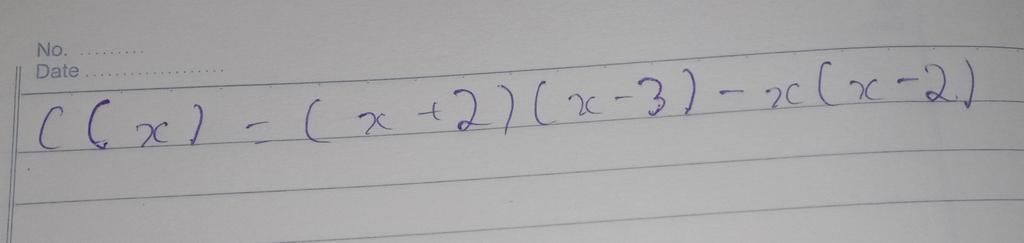 No. .........
Date ...................
C(x) = (x+2)(x-3) - x(x-2)